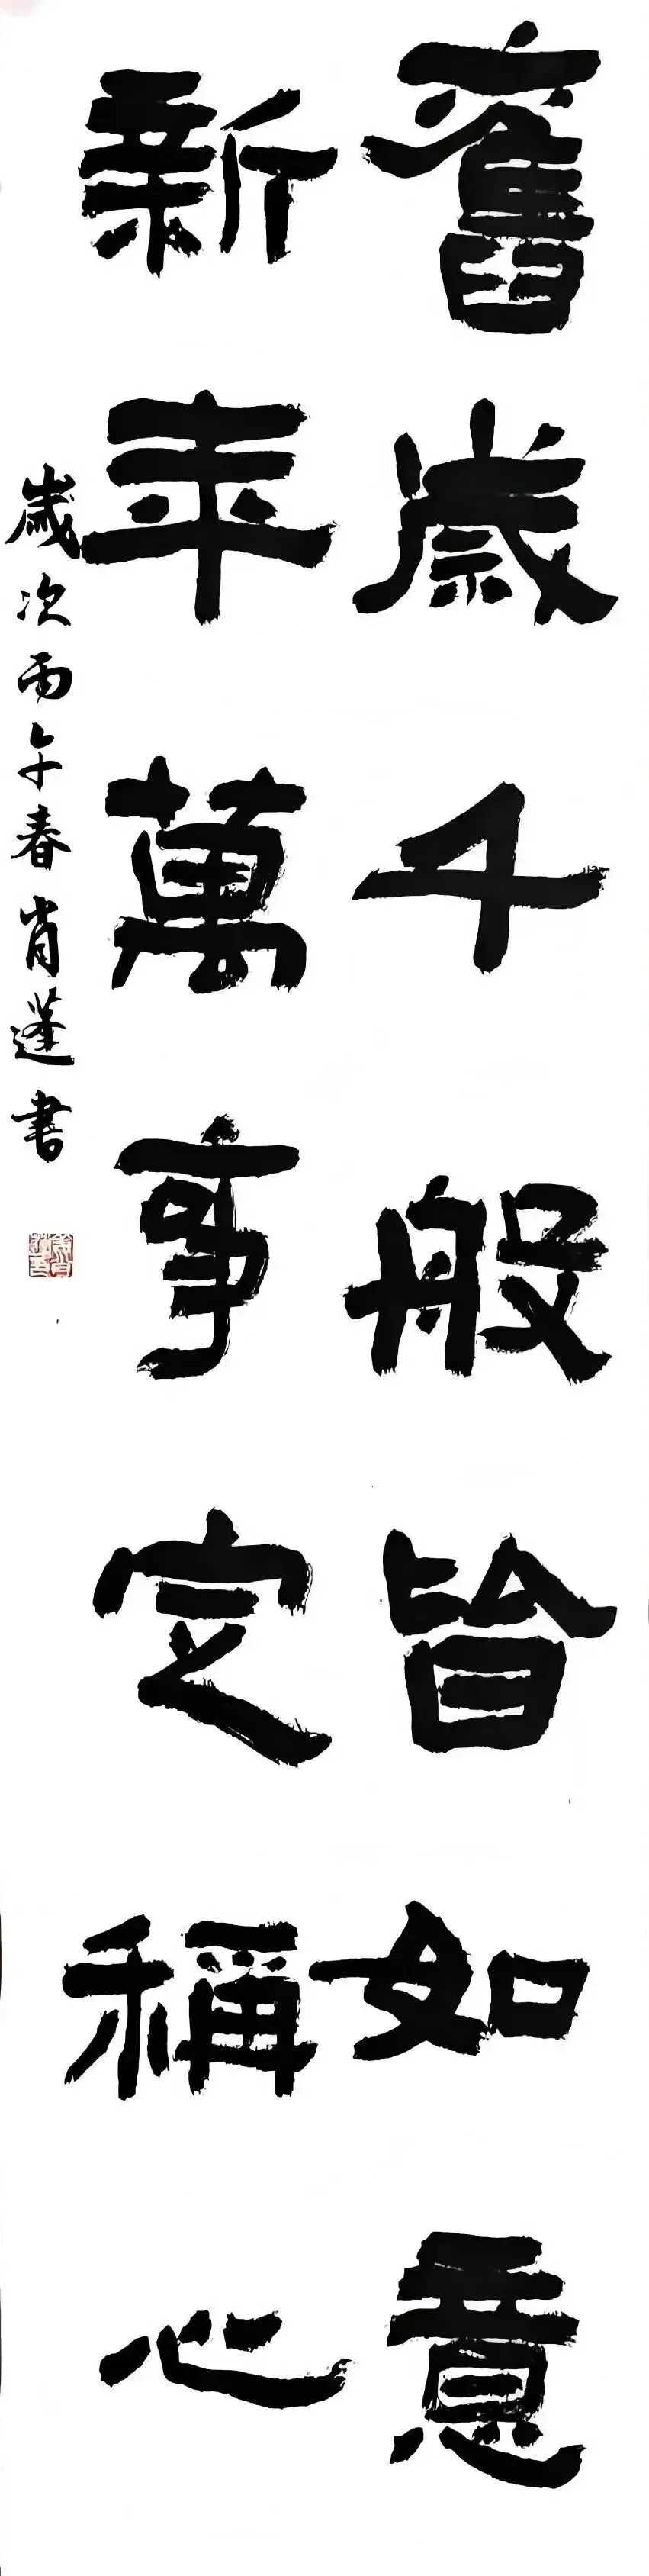 舊歲千般皆如意
新年萬事定稱心
歲次丙午春肖蓬書